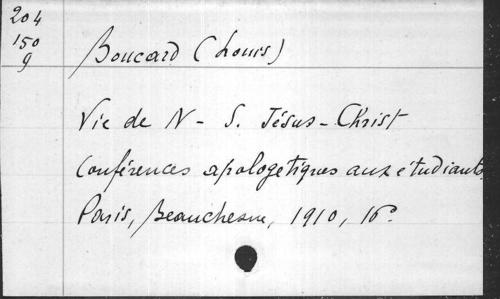 204
150
9
Boucard (Louis)
Vie de N-S. Jésus-Christ
Conférences apologetiques aux etudiants,
Paris, Beauchesne, 1910, 16°.